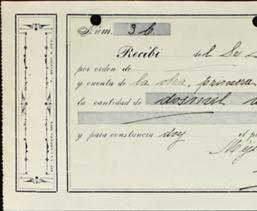 Núm. 36
Recibí del Sr
por orden de
y cuenta de la obra primera
la cantidad de dosmil
y para constancia doy el p
Méj